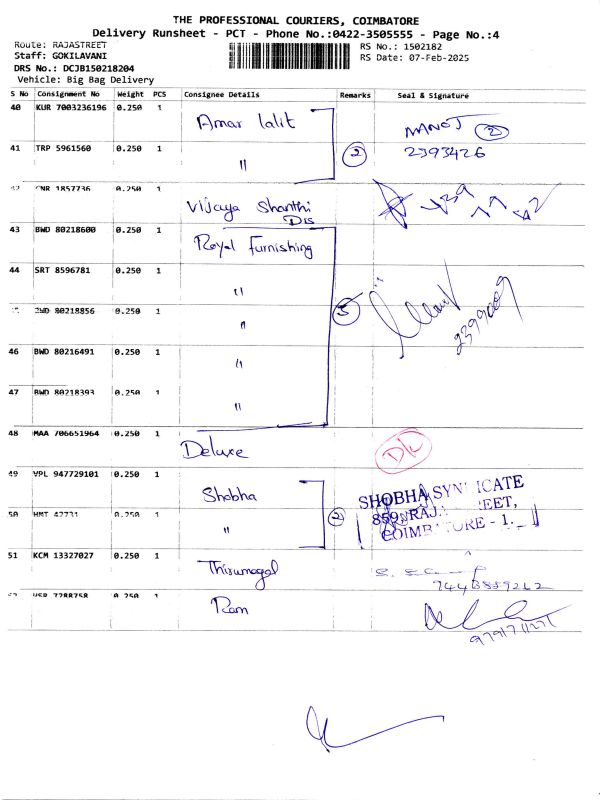 THE PROFESSIONAL COURIERS, COIMBATORE
Delivery Runsheet - PCT - Phone No.:0422-3505555 - Page No.:4
Route: RAJASTREET RS No.: 1502182
Staff: GOKILAVANI RS Date: 07-Feb-2025
DRS No.: DCJB150218204
Vehicle: Big Bag Delivery
S No Consignment No Weight PCS Consignee Details Remarks Seal & Signature
40 KUR 7003236196 0.250 1 Amar lalit MANOJ 2
41 TRP 5961560 0.250 1 " 2 2393426
1857736 0.250 1 Vijaya Shanthi Dis
43 BWD 80218600 0.250 1 Royal Furnishing
44 SRT 8596781 0.250 1 "
80218856 0.250 1 " 5
46 BWD 80216491 0.250 1 "
47 BWD 80218393 0.250 1 "
48 MAA 706651964 0.250 1 Deluxe D/L
49 VPL 947729101 0.250 1 Shobha SHOBHA SYNDICATE
50 HMT 42731 0.250 1 " 2 859, RAJA STREET,
COIMBATORE - 1.
51 KCM 13327027 0.250 1 Thirumagal
7288758 0.250 1 Ram